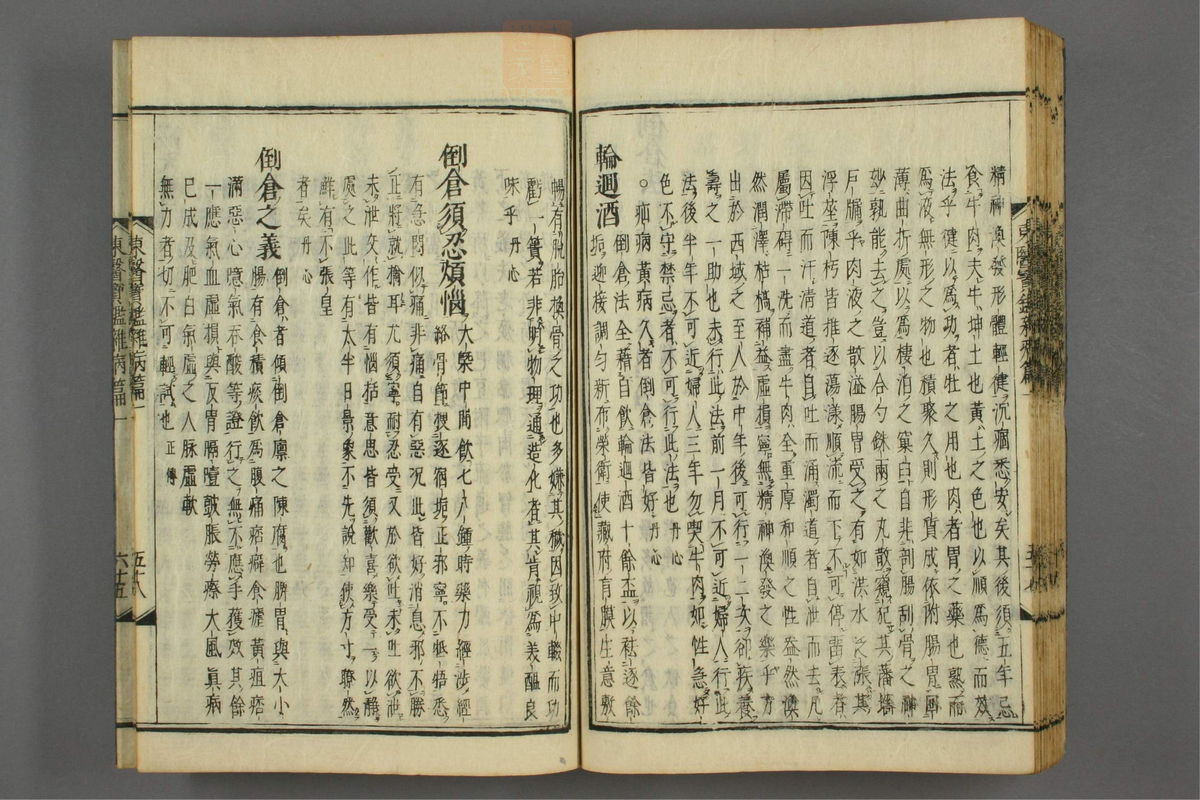 精神渙發形體輕健沉痼悉安矣其後須五年忌
食牛肉夫牛坤土也黃土之色也以順爲德而效
法乎健以爲功者牡之用也肉者胃之藥也熟而
爲液無形之物也積聚久則形質成依附腸胃回
薄曲折處以爲棲泊之窠臼自非剖腸刮骨之神
妙孰能去之豈以合勺銖兩之丸散窺犯其藩墻
戶牖乎肉液之散溢腸胃受之有如洪水泛漲其
浮莝陳朽皆推逐蕩漾順流而下不可停留表者
因吐而汗清道者自吐而涌濁道者自泄而去凡
屬滯碍一洗而盡牛肉全重厚和順之性盎然渙
然潤澤枯槁補益虛損寧無精神渙發之樂乎方
出於西域之至人於中年後可行一二次却疾養
壽之一助也未行此法前一月不可近婦人行此
法後半年不可近婦人三年勿喫牛肉如性急好
色不守禁忌者不可行此法也丹心
○疝病黃病久者倒倉法皆好丹心
輪迴酒
倒倉法全藉自飲輪迴酒十餘盃以祛逐餘
垢迎接調勻新布榮衛使藏府肓膜生意敷
暢有脫胎換骨之功也多嫌其穢因致中輟而功
虧一簣若非明物理通造化者其肯視爲美醞良
味乎丹心
倒倉須忍煩惱 大槩中間飲七八鍾時藥力經涉經
絡骨節搜逐宿垢正邪寧不牴牾悉
有急悶似痛非痛自有惡況此皆好消息邪不勝
正將就擒耳尤須寧耐忍受又於欲吐未吐欲泄
未泄交作皆有惱括意思皆須歡喜樂受一以靜
處之此等有太半日景象不先說知使方寸瞭然
鮮有不張皇
者矣丹心
倒倉之義 倒倉者傾倒倉廩之陳腐也脾胃與大小
腸有食積痰飲爲腹痛痞癖食瘧黃疸痞
滿惡心噫氣吞酸等證行之無不應手獲效其餘
一應氣血虛損與反胃膈噎皷脹勞瘵大風眞病
已成及肥白氣虛之人脉虛軟
無力者切不可輕試也正傳
東醫寶鑑雜病篇一 五十八
東醫寶鑑雜病篇一 六十五